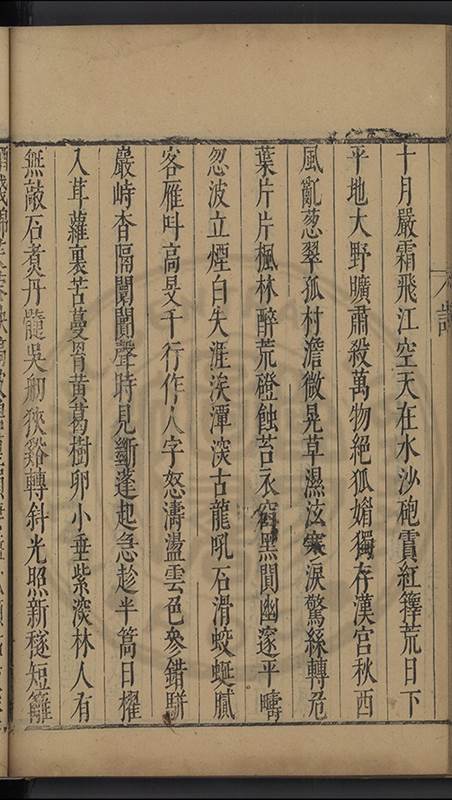 十月嚴霜飛江空天在水沙砲賈紅籜荒日下
平地大野曠肅殺萬物絕狐媚獨存漢宮秋西
風亂葱翠孤村澹微晃草濕泫寒淚驚絲轉危
葉片片楓林醉荒磴蝕苔衣窈黑閴幽邃平疇
忽波立煙白失涯涘潭深古龍吼石滑蛟蜒膩
客雁叫高旻千行作人字怒濤盪雲色參錯駢
巖峙杳隔闤闠聲時見斷蓬起急趁半篙日櫂
入茸蘿裏苦蔓胃黃葛樹卵小垂紫深林人有
無敲石煮丹髓吳刎狹谿轉斜光照新穟短籬